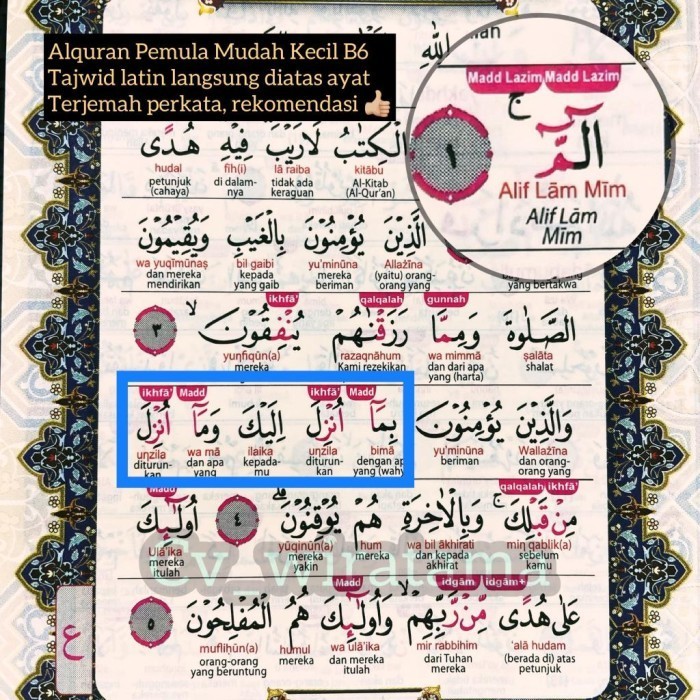 Alquran Pemula Mudah Kecil B6
Tajwid latin langsung diatas ayat
Terjemah perkata, rekomendasi
Madd Lazim Madd Lazim
الٓمّٓ ۚ ١
Alif Lām Mīm
Alif Lām
Mīm
الْكِتٰبُ لَارَيْبَ ۛ فِيْهِ ۛ هُدًى
kitābu lā raiba fīh(i) hudal
Al-Kitab tidak ada di dalam- petunjuk
(Al-Qur'an) keraguan nya (cahaya)
الَّذِيْنَ يُؤْمِنُوْنَ بِالْغَيْبِ وَيُقِيْمُوْنَ
Allażīna yu'minūna bil gaibi wa yuqīmūnaṣ
(yaitu) orang- mereka kepada dan mereka
yang bertakwa orang yang beriman yang gaib mendirikan
gunnah qalqalah ikhfā'
الصَّلٰوةَ وَمِمَّا رَزَقْنٰهُمْ يُنْفِقُوْنَ ۙ ٣
ṣalāta wa mimmā razaqnāhum yunfiqūn(a)
shalat dan dari apa Kami rezekikan mereka
yang (harta)
Madd ikhfā' Madd ikhfā'
وَالَّذِيْنَ يُؤْمِنُوْنَ بِمَآ اُنْزِلَ اِلَيْكَ وَمَآ اُنْزِلَ
Wallażīna yu'minūna bimā unzila ilaika wa mā unzila
dan orang- beriman dengan ap diturun- kepada- dan apa diturun-
orang yang yang (wahy kan mu yang kan
ikhfā' qalqalah Madd
مِنْ قَبْلِكَ ۚ وَبِالْاٰخِرَةِ هُمْ يُوْقِنُوْنَ ۗ ٤ اُولٰۤىِٕكَ
min qablik(a) wa bil ākhirati hum yūqinūn(a) Ulā'ika
sebelum dan kepada mereka mereka mereka
kamu akhirat yakin itulah
Cv_wiratama
idgām+ idgām Madd
عَلٰى هُدًى مِّنْ رَّبِّهِمْ ۙ وَاُولٰۤىِٕكَ هُمُ الْمُفْلِحُوْنَ ٥
'alā hudam mir rabbihim wa ulā'ika humul mufliḥūn(a)
(berada di) atas dari Tuhan dan mereka mereka orang-orang
petunjuk mereka itulah yang beruntung
ع